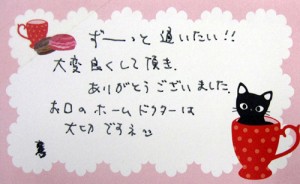 ずーっと通いたい!!
大変良くして頂き、
ありがとうございました。
お口のホームドクターは
大切ですネ